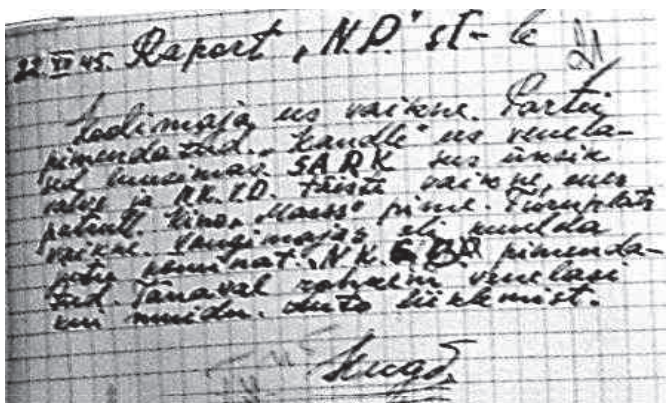 22. XII 45. Raport „N.P." st-le
Koolimaja ees vaikne. Partei
pimendatud. „Kandle" ees venela-
sed
SARK ees üksik
valve ja N.K.V.D. täiesti vaikne, ees
patrull. Kino „Marss" pime. Turuplats
vaikne. Vangimajas oli kuulda
N.K.G.B. pimenda-
tud. Tänaval rohkem venelasi
kui muidu. Auto liiklemist.